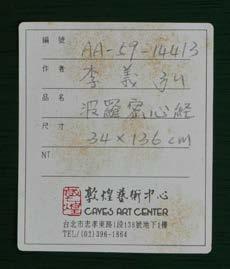 編號 AA-59-14413
作者 李義弘
品名 波羅蜜心經
尺寸 34×136cm
NT
敦煌藝術中心
CAVES ART CENTER
台北市忠孝東路1段138號地下1樓
TEL/(02)396-1864